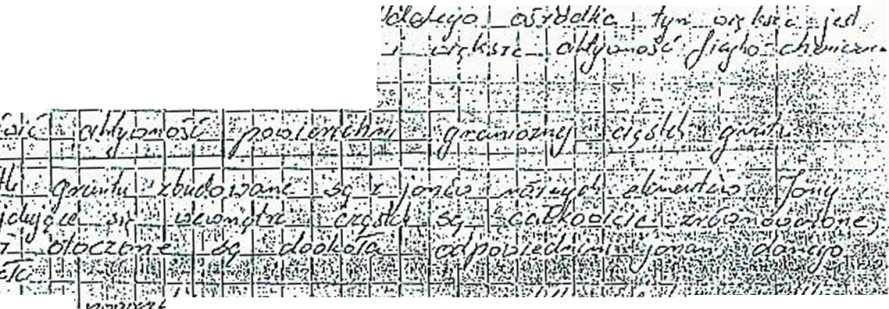 ośrodka tym większe jest
większe aktywność fizyko-chemiczn
aktywność powierzchni granicznej cząstek gruntu
gruntu zbudowane są z jonów różnych elementów Jony
się wewnątrz cząstki są całkowicie zrównoważone,
otoczone są dookoła odpowiednimi jonami danego